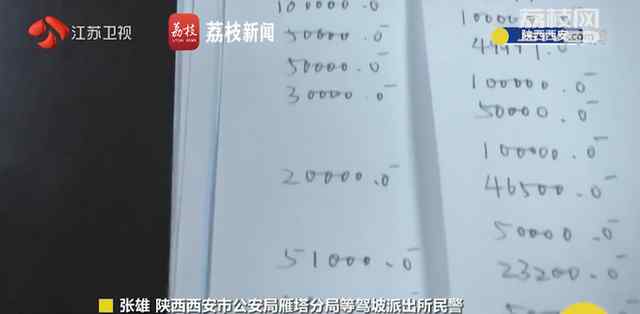 江苏卫视
荔枝
荔枝新闻
荔枝网
陕西西安
100000.0
50000.0
50000.0
30000.0
20000.0
51000.0
100000.0
50000.0
100000.0
46500.0
50000.0
23200.0
张雄 陕西西安市公安局雁塔分局等驾坡派出所民警